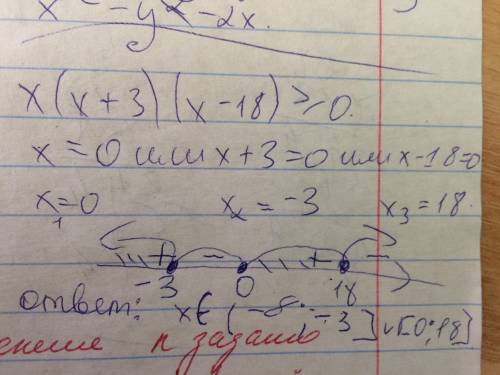 x² - y² - 2x.
x(x+3)(x-18)≥0.
x=0 или x+3=0 или x-18=0
x₁=0 x₂=-3 x₃=18.
+ - + -
-3 0 18
ответ: x∈(-∞;-3]∪[0;18]
к задаю